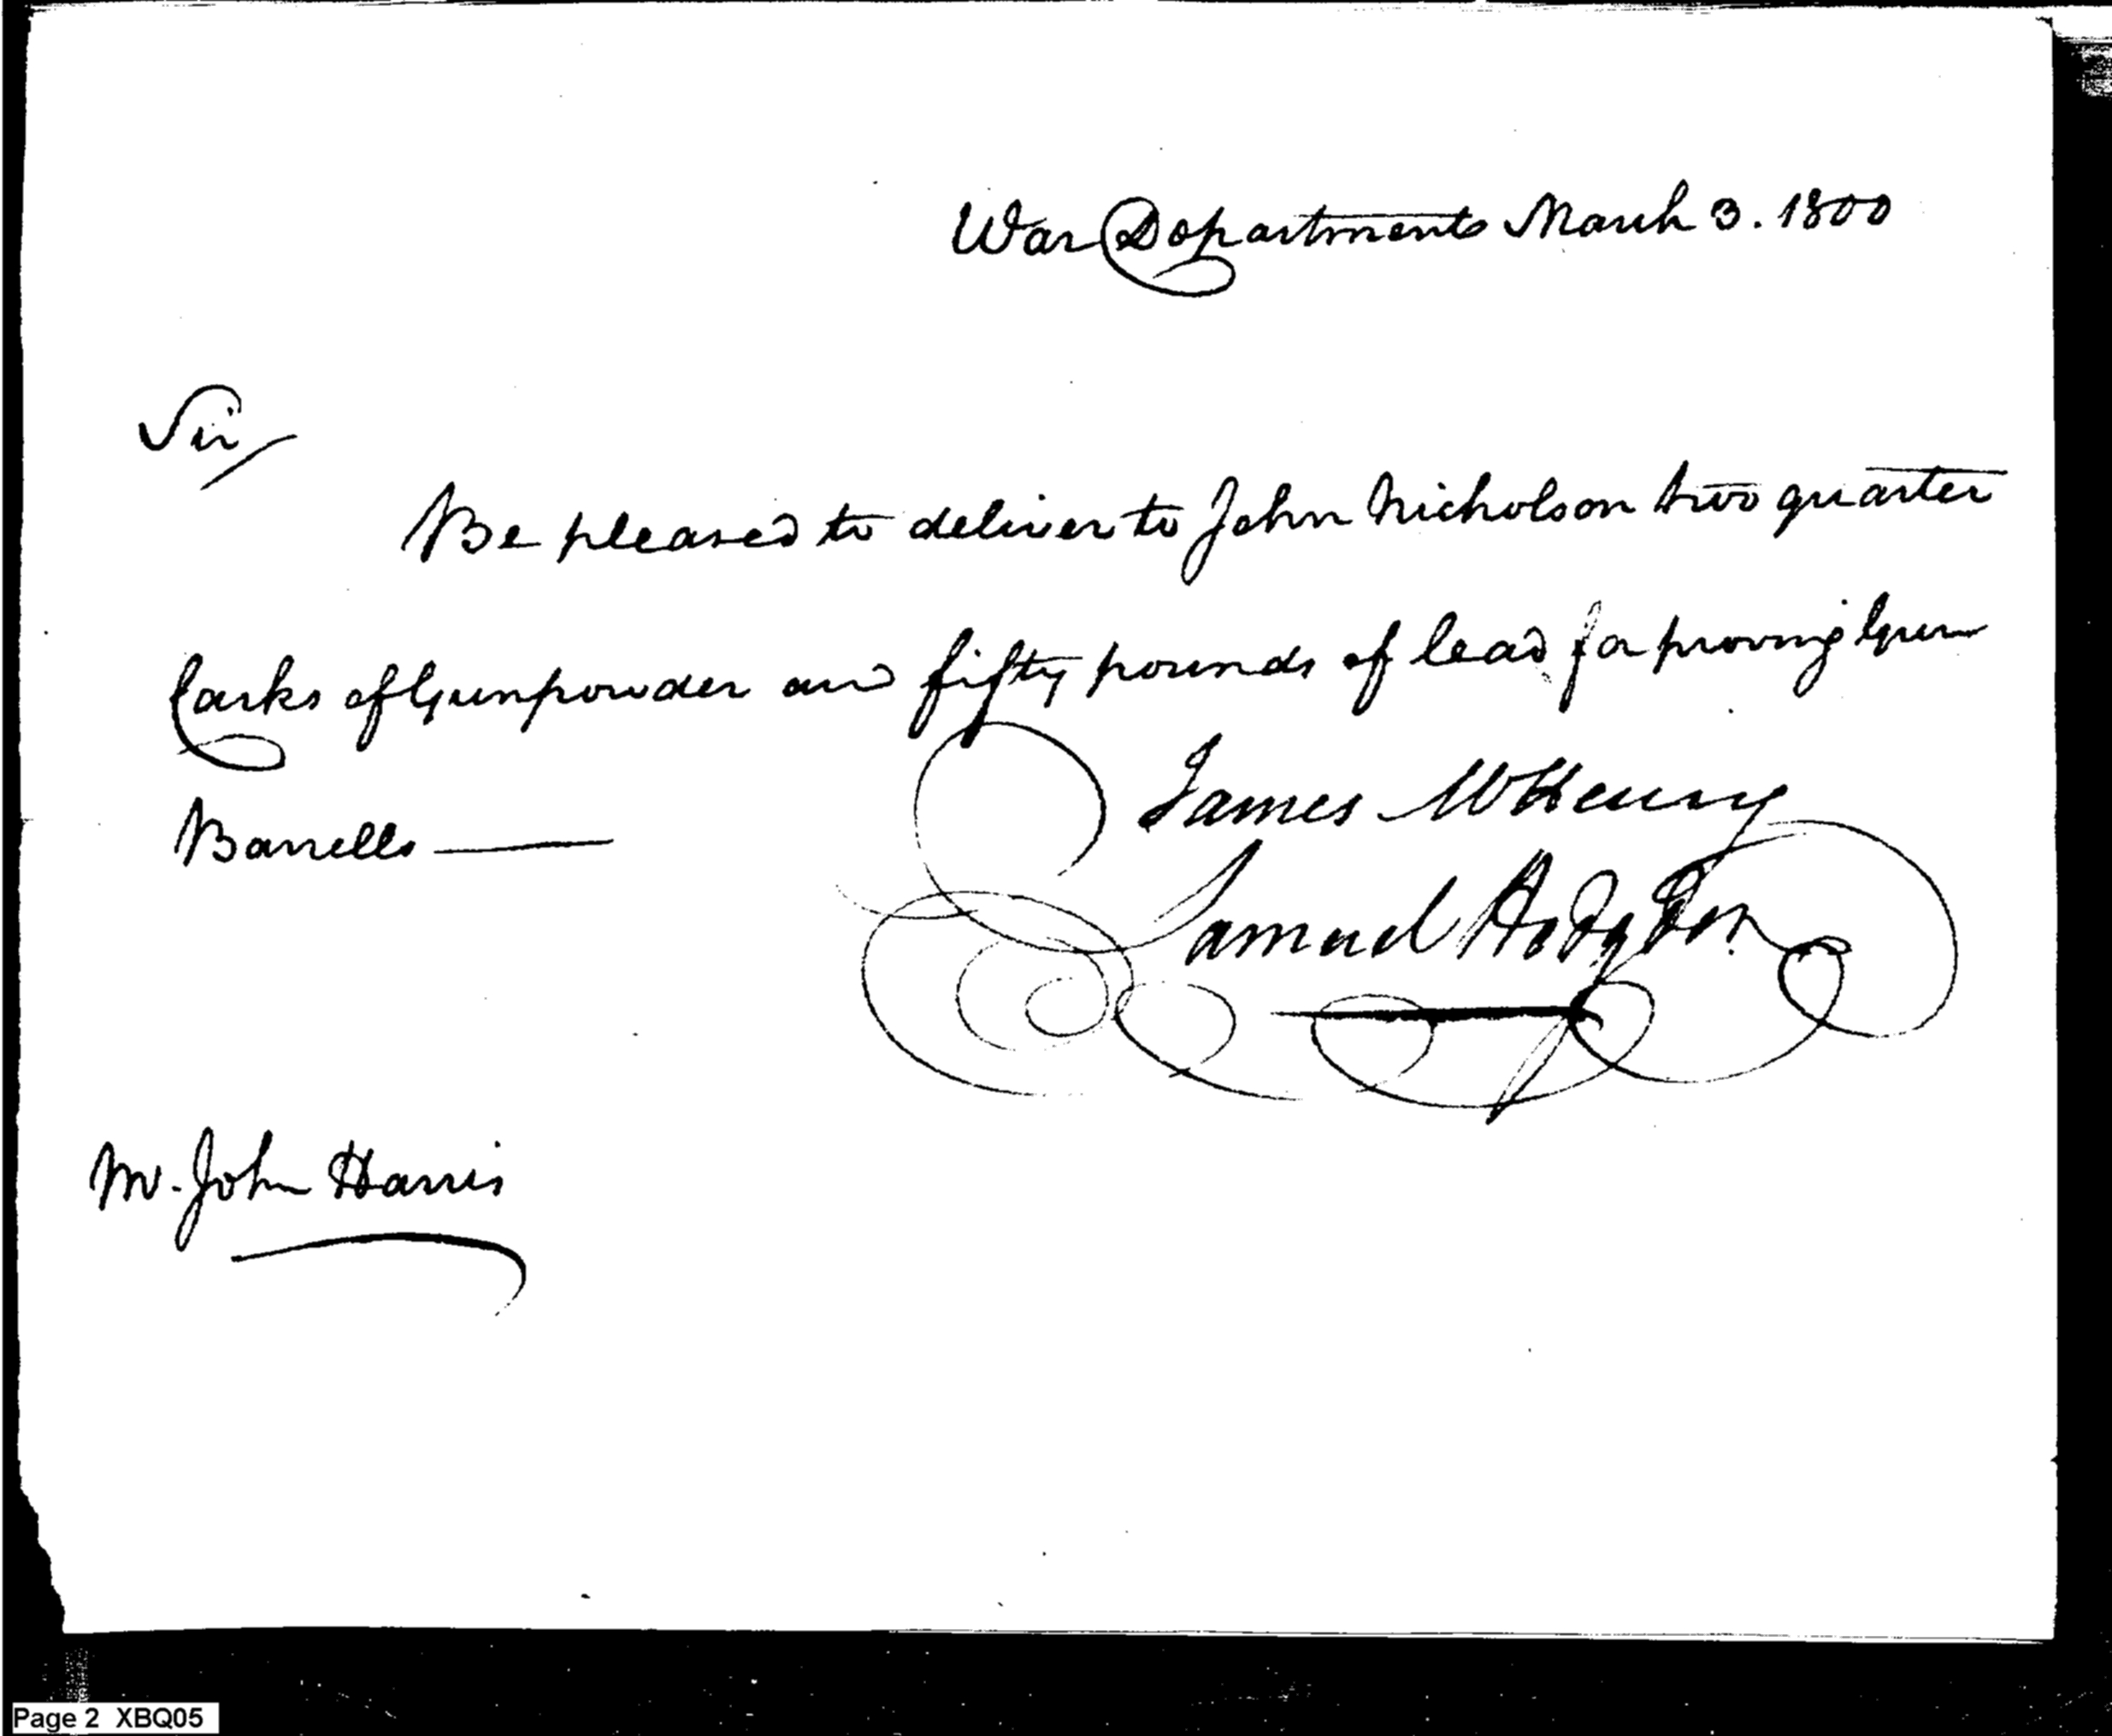 War Department March 3. 1800
Sir/
Be pleased to deliver to John Nicholson two quarter
Casks of Gunpowder and fifty pounds of lead for proving Gun
Barrells —
James McHenry
Samuel Hodgdon
Mr. John Harris
Page 2 XBQ05